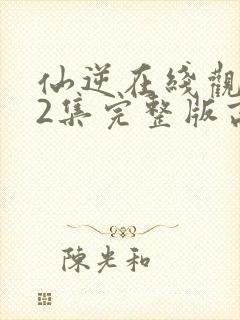 仙逆在綫觀
2集完整版
陳光和